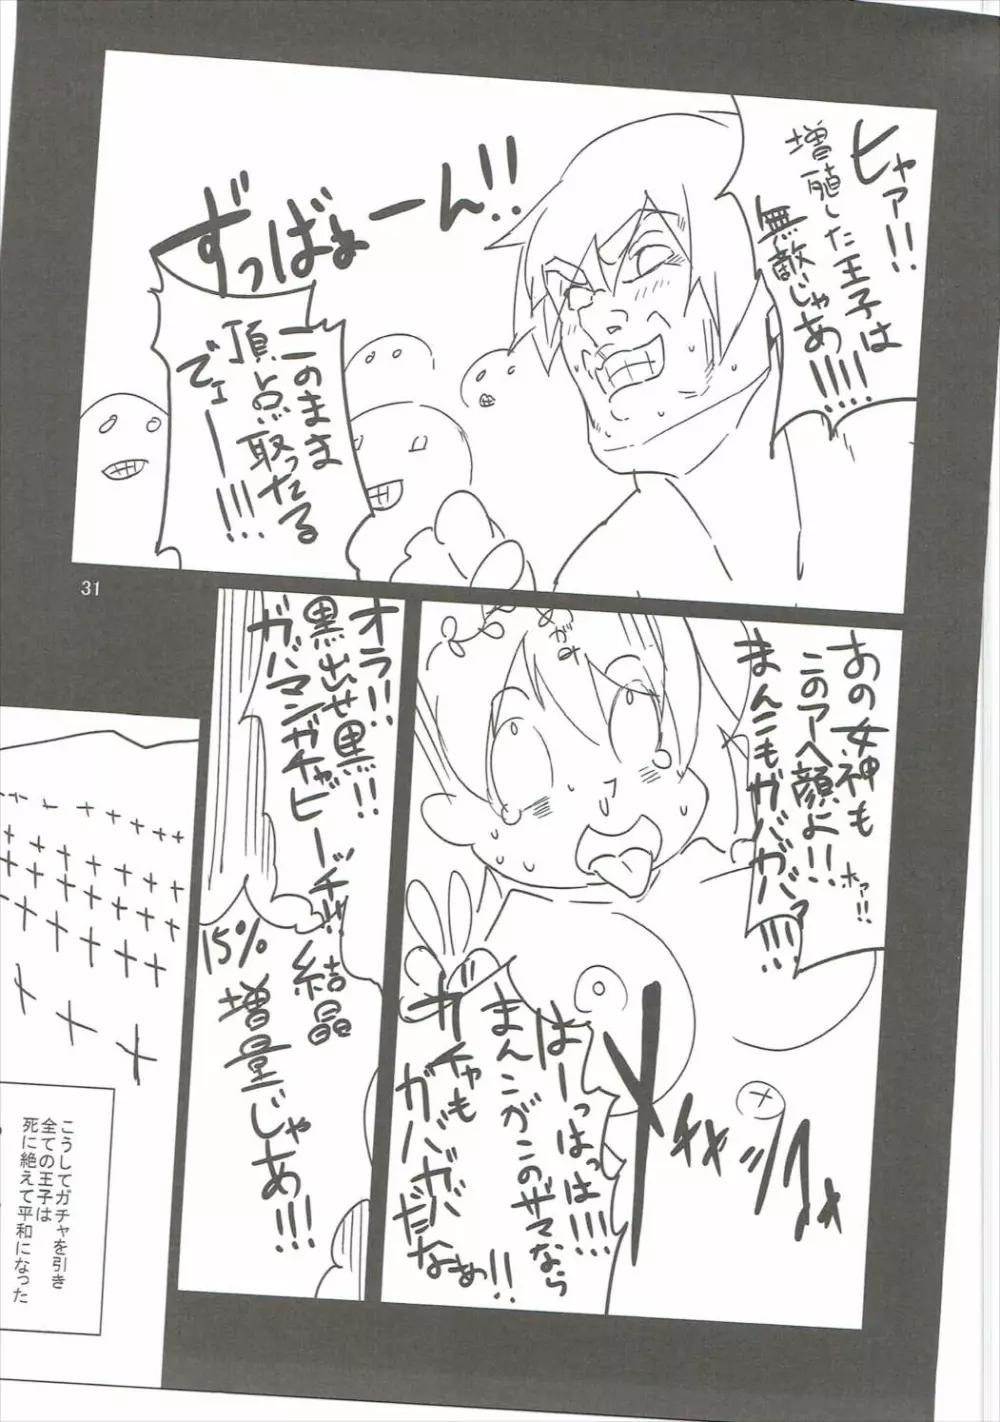 ヒャァ!!
増殖した王子は
無敵じゃあ!!!!
ずっばぁーん!!
このまま
頂点取ったる
でェーー!!!
31
あの女神も
このアヘ顔よ!!
まんこもガバガバァ!!!
ホァ!!
めがみ
はーっはっは!!!!
まんこがこのザマなら
ガチャも
ガバガバ
だなぁ!!
オラ!!
黒出せ黒!!
ガバマンガチャビーッチ!!
結晶
15%
増量じゃあ!!!
こうしてガチャを引き
全ての王子は
死に絶えて平和になった